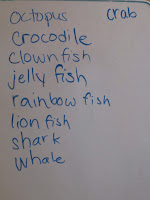 octopus crab
crocodile
clownfish
jelly fish
rainbow fish
lion fish
shark
whale